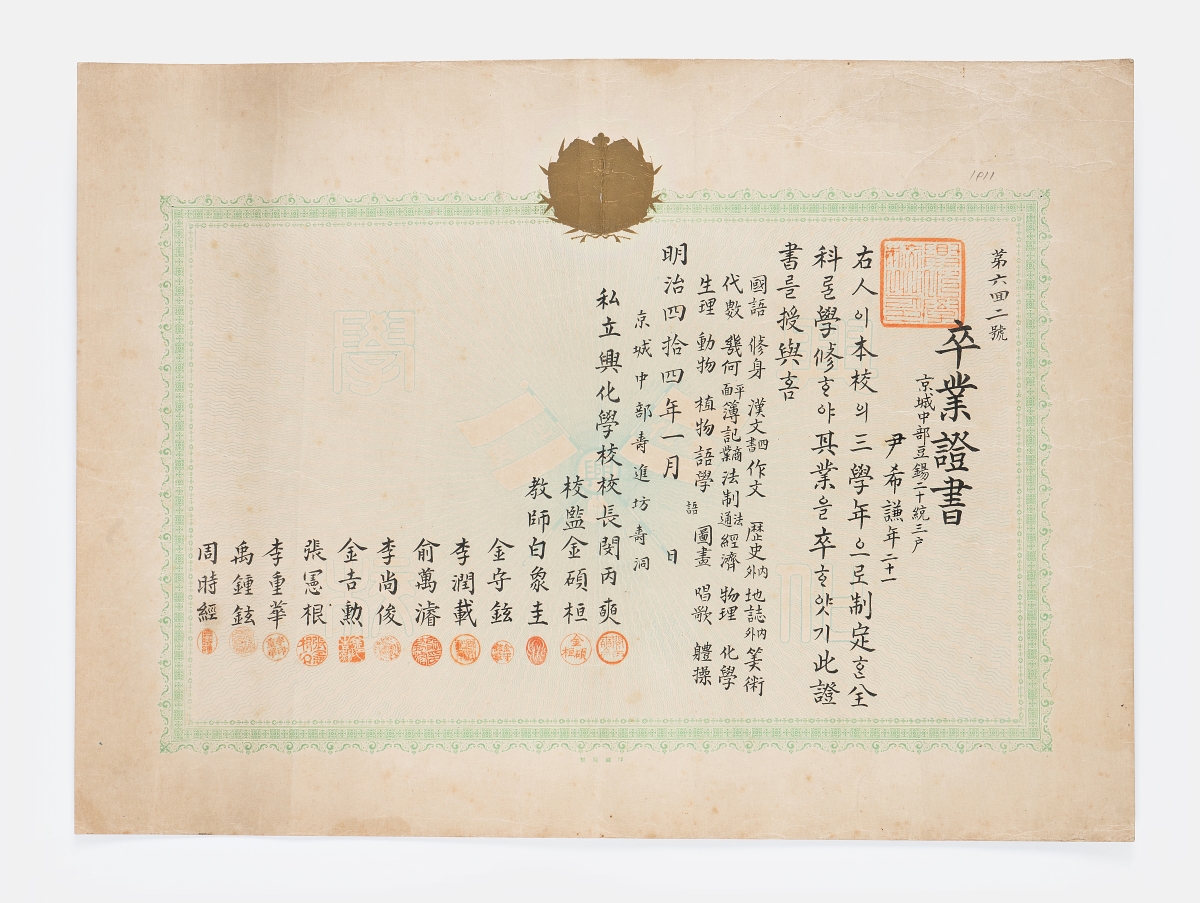 第六四二號
卒業證書
京城中部豆錫二十統三戶
尹希謙年二十一
右人이本校의三學年으로制定ᄒᆞᆫ全
科ᄅᆞᆯ學修ᄒᆞ야其業을卒ᄒᆞ얏기此證
書를授與홈
國語 修身 漢文四書 作文 歷史內外 地誌內外 筭術
代數 幾何平面 簿記商業 法制法通 經濟 物理 化學
生理 動物 植物 語學語 圖畫 唱歌 軆操
明治四拾四年一月 日
京城中部壽進坊壽洞
私立興化學校校長閔丙奭
校監金碩桓
敎師白象圭
金守鉉
李潤載
俞萬濬
李尙俊
金吉勳
張憲根
李重華
禹鍾鉉
周時經
1911